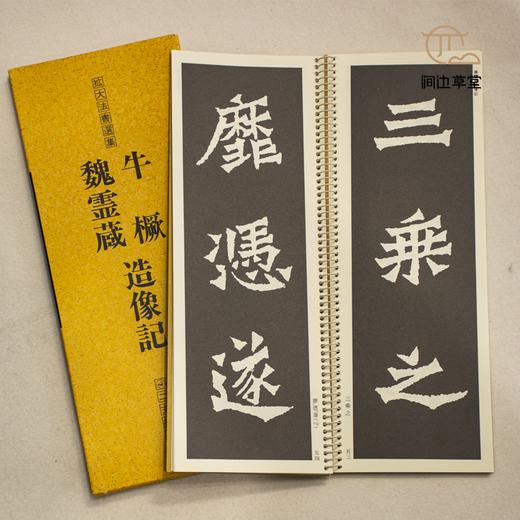 涧边草堂
拡大法書選集
牛橛造像記
魏霊蔵
三乗之
靡憑遂
三乗之